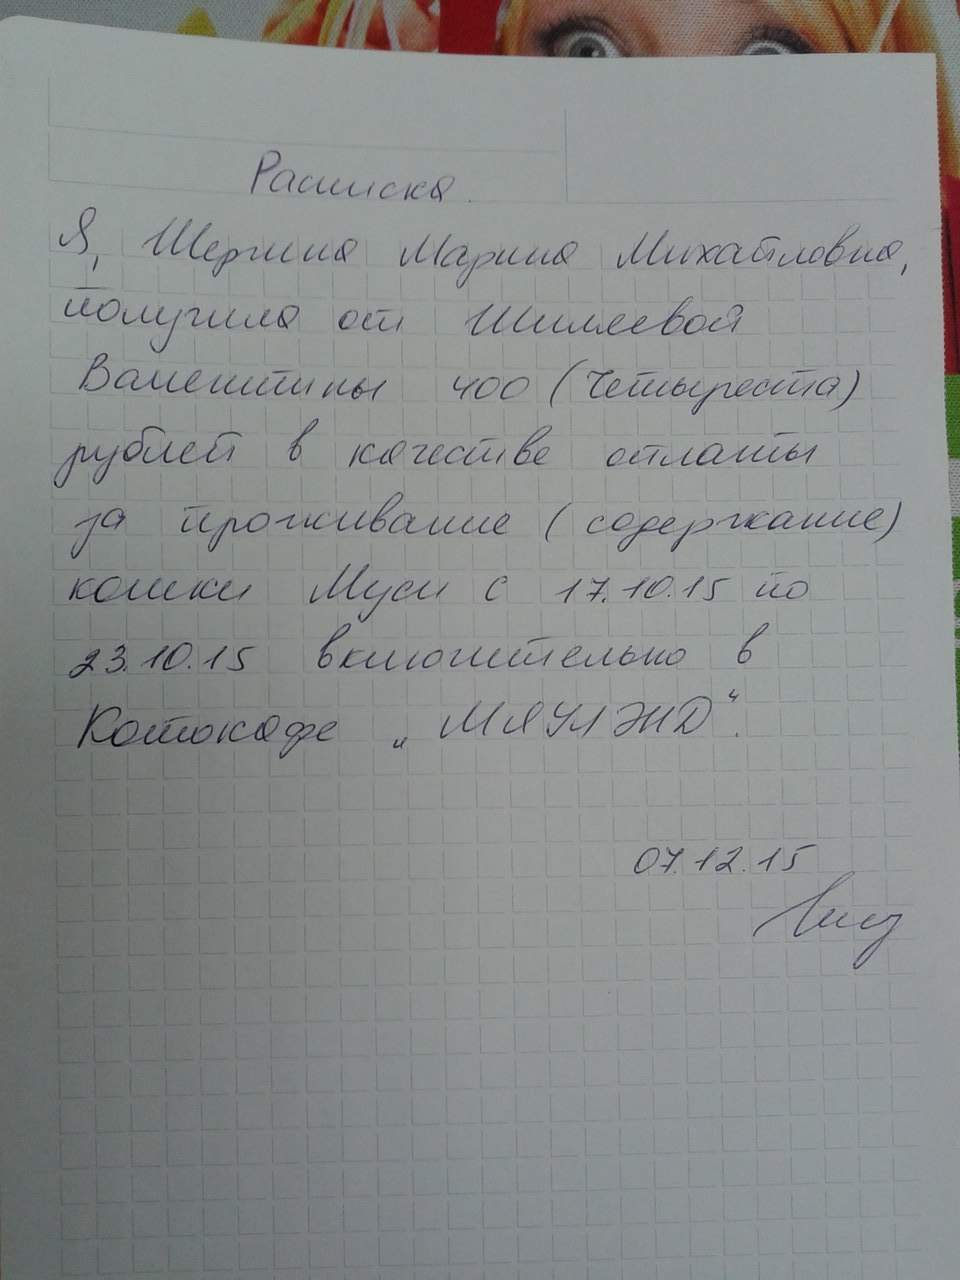 Расписка.
Я, Шергина Марина Михайловна,
получила от Шиляевой
Валентины 400 (Четыреста)
рублей в качестве оплаты
за проживание (содержание)
кошки Муси с 17.10.15 по
23.10.15 включительно в
Котокафе „МЯУЛЭНД“.
07.12.15